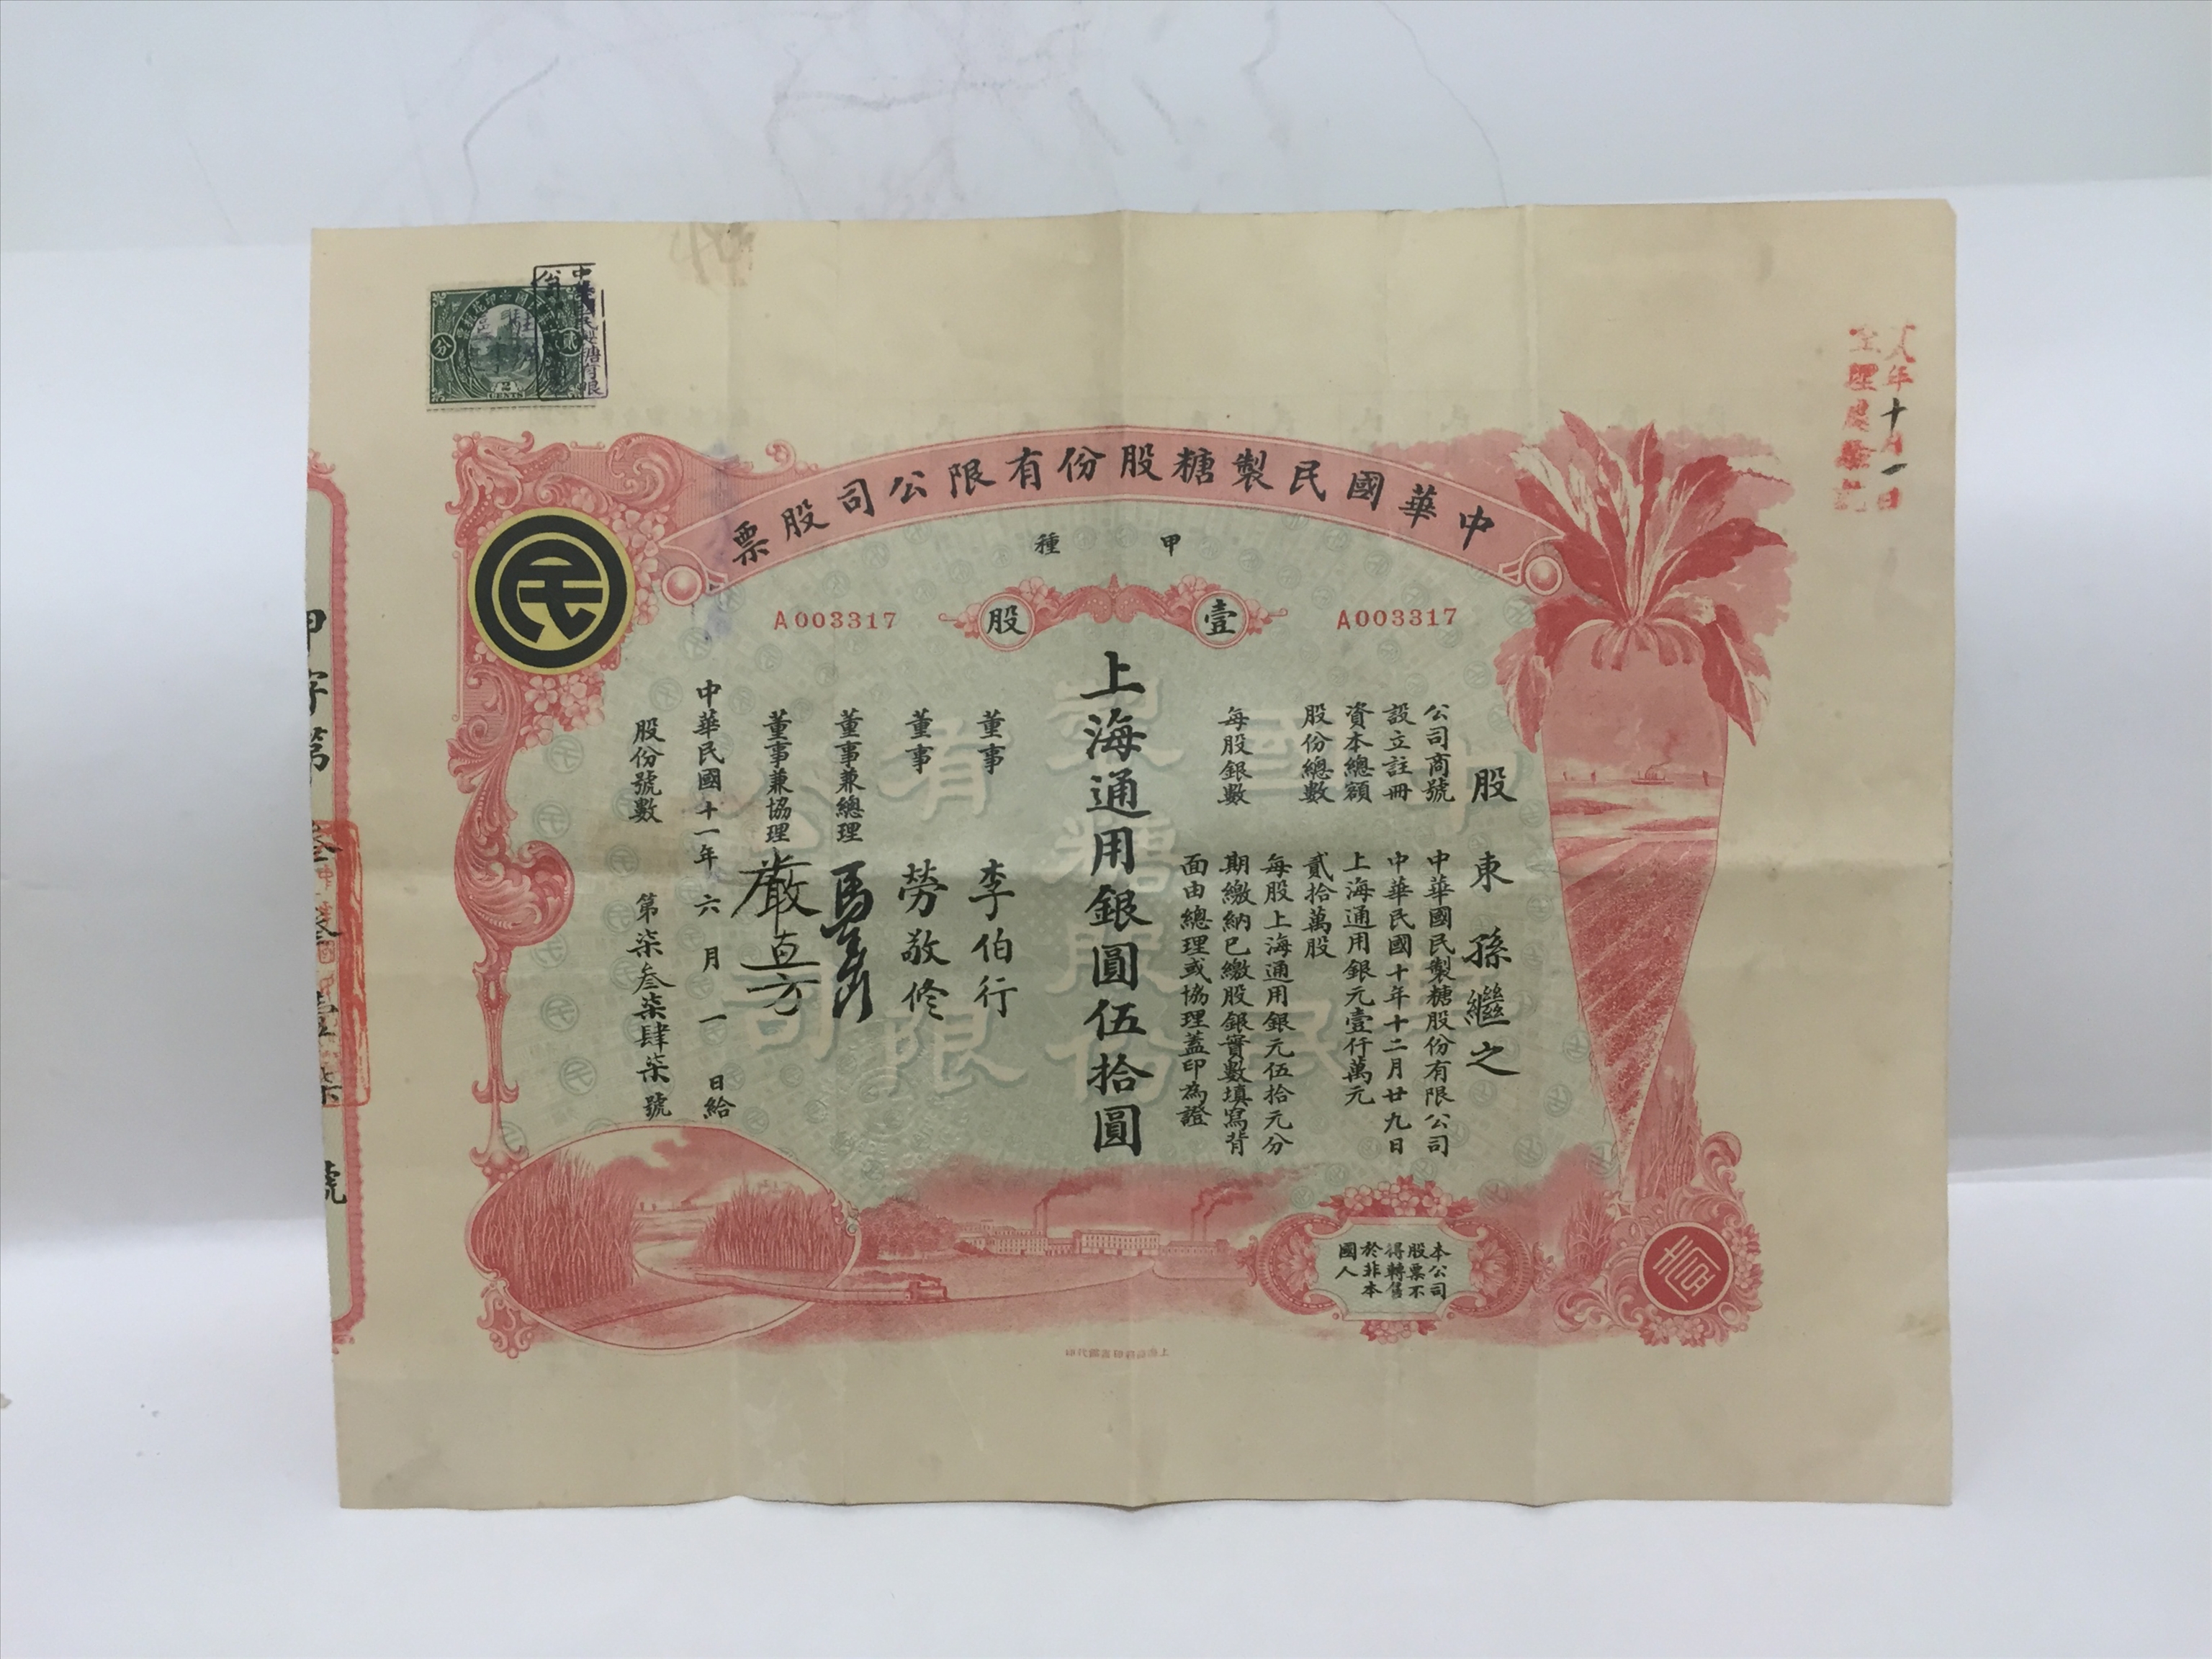 中華國民製糖股份有限公司股票
甲種
壹股
A003317
A003317
股東 孫繼之
公司商號 中華國民製糖股份有限公司
設立註冊 中華民國十年十二月廿九日
資本總額 上海通用銀元壹仟萬元
股份總數 貳拾萬股
每股銀數 每股上海通用銀元伍拾元分
期繳納已繳股銀實數填寫背
面由總理或協理蓋印為證
上海通用銀圓伍拾圓
董事 李伯行
董事 勞敬修
董事兼總理
董事兼協理 嚴直方
中華民國十一年六月一日給
股份號數 第柒叁柒肆柒號
本公司
股票不
得轉售
於非本
國人
壹
民
貳
分
2
CENTS
年十月一日
甲字第
號